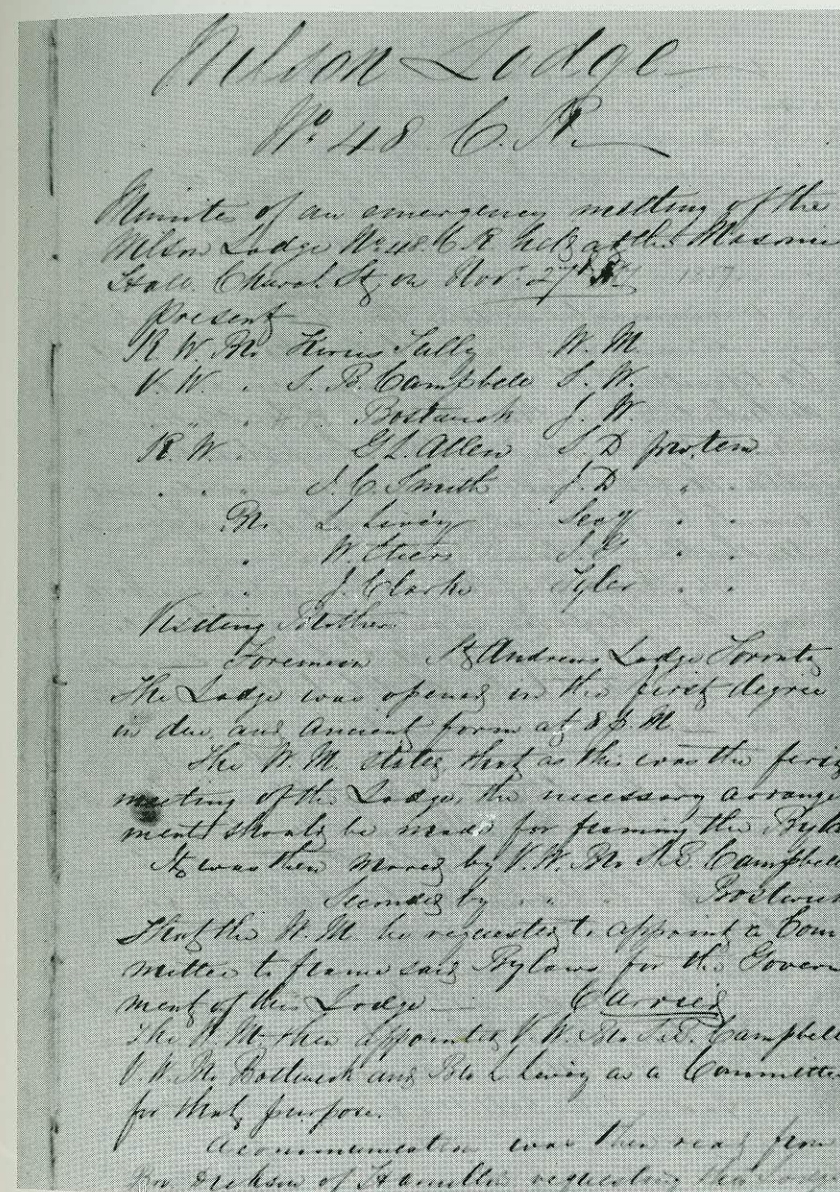 Wilson Lodge
No 48 C. R.
Minutes of an emergency meeting of the
Wilson Lodge No 48 C. R. held at the Masonic
Hall Church St, on Novr. 27th 1857
Present
R W Bro Kivas Tully W. M.
V. W. . S. B. Campbell S. W.
Bostwick J. W.
R. W. G. L. Allen S. D protem
. . . J. C. Smith J. D " .
Br. L. Levey Secy . .
. W. Stiers J. G . .
. J. Clarke Tyler . .
Visiting Brothers
Foreman St Andrews Lodge Toronto
The Lodge was opened in the first degree
in due and Ancient form at 8 p. M
The W. M. stated that as the was the first
meeting of the Lodge, the necessary arrange
ments should be made for framing the Byla
It was then moved by V. W. Bro S. B. Campbell
Seconded by . . . Bostwick
That the W. M. be requested to appoint a Com
mittee to frame said Bylaws for the Govern
ment of this Lodge — Carried
The W. M. then appointed V. W. Bro S. B. Campbell
V. W. Br. Bostwick and Bro L. Levey as a Committee
for that purpose.
A communication was then read from
Bro. of Hamilton requesting this Lodge